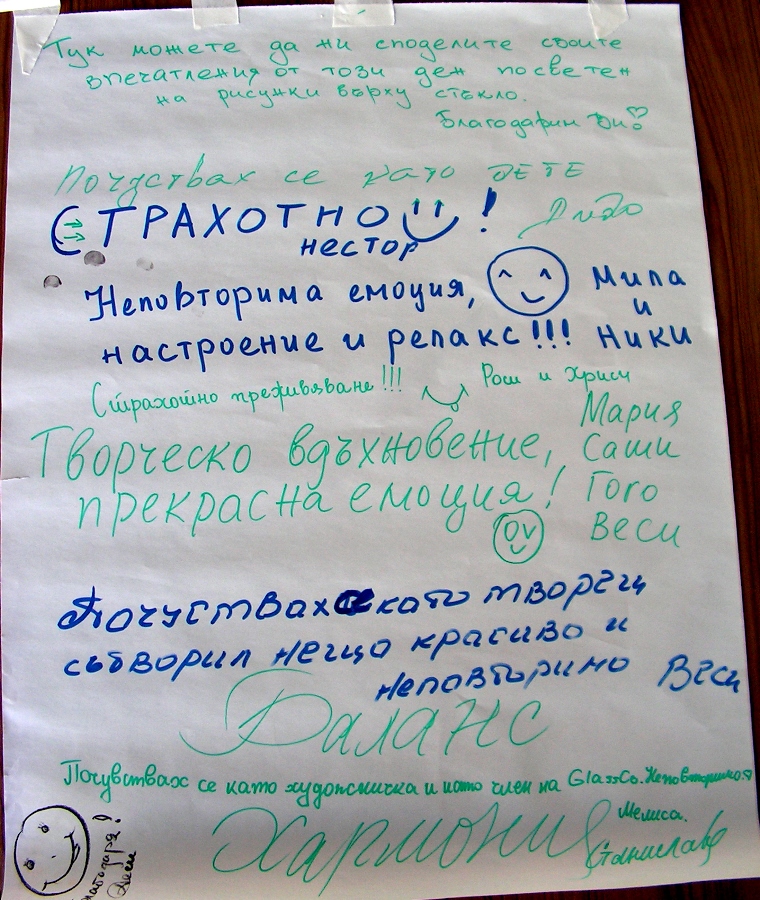 Тук можете да ни споделите своите
впечатления от този ден посветен
на рисунки върху стъкло.
Благодарим Ви!
Почуствах се като дете
СТРАХОТНО !
нестор
Неповторима емоция,
настроение и релакс!!!
Мила
и
Ники
Страхотно преживяване!!!
Рош и Хриси
Творческо вдъхновение,
прекрасна емоция!
Мария
Саши
Гого
Веси
Почуствах се като творец
сътворил нещо красиво и
неповторимо Веси
Баланс
Почувствах се като художничка и като член на GlassCo.
Мелиса.
Хармония
Станислав
Благодаря!
Веси